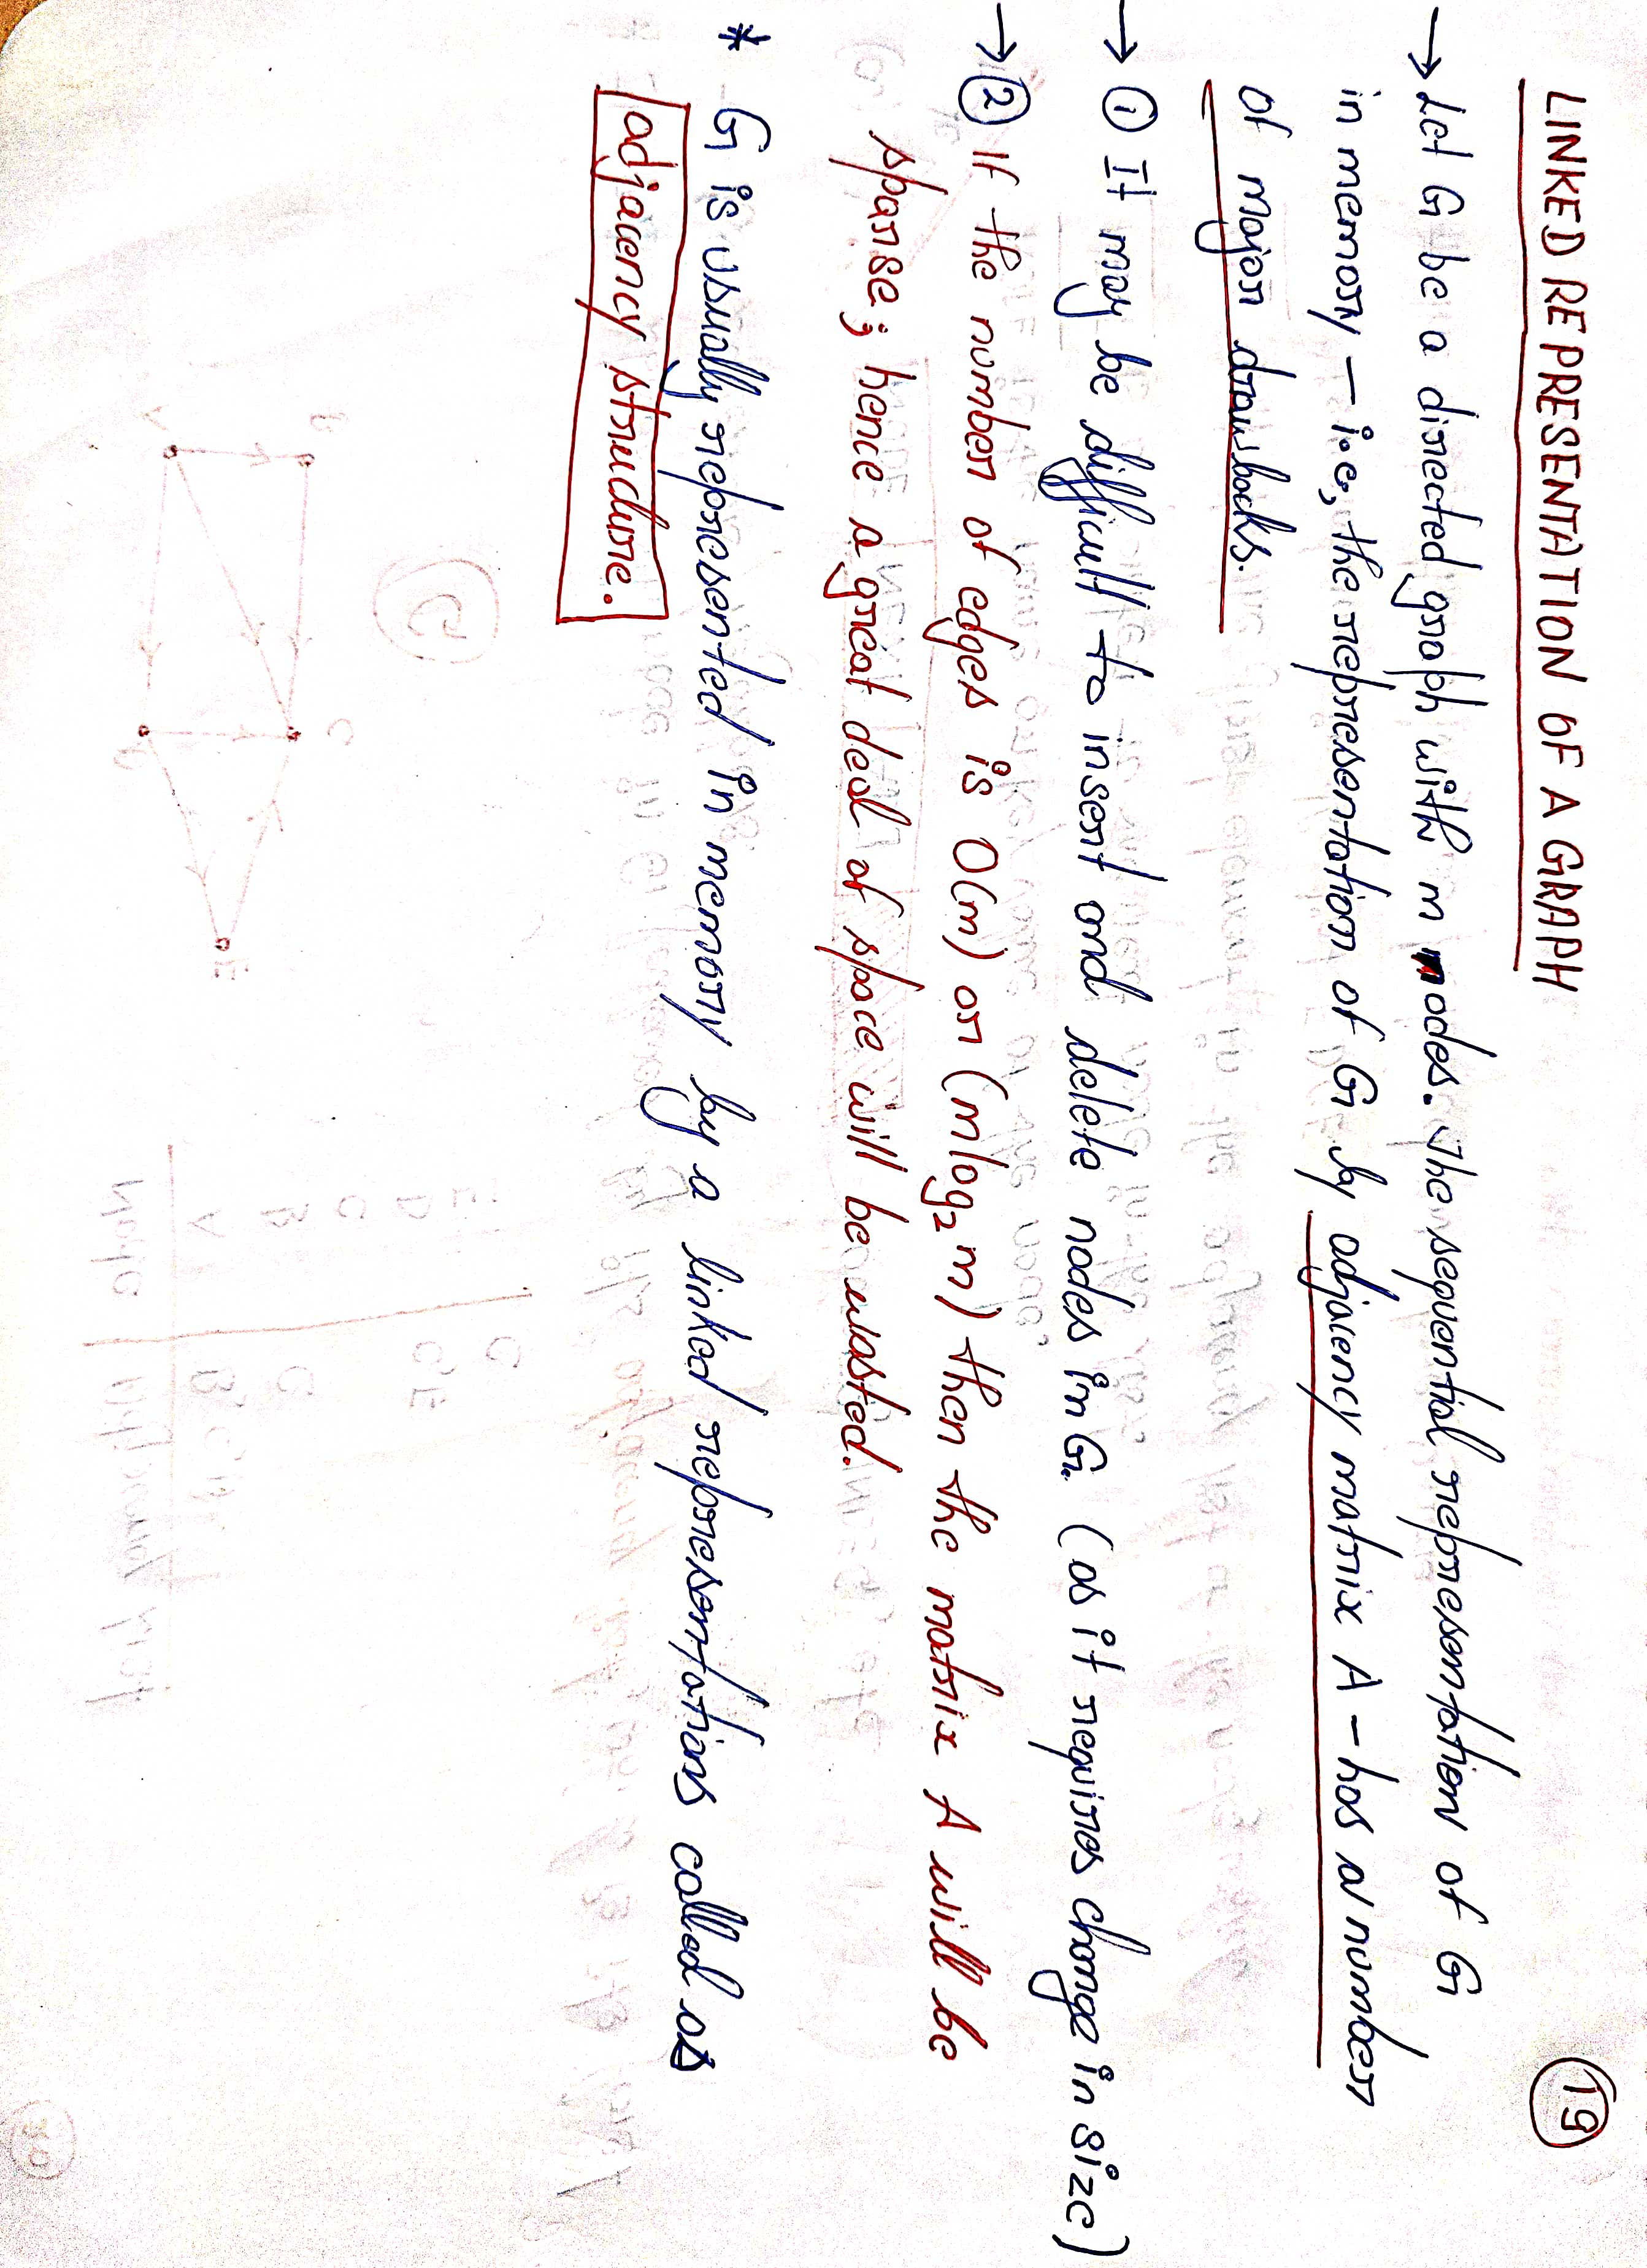 19
LINKED REPRESENTATION OF A GRAPH
→ Let G be a directed graph with m nodes. The sequential representation of G
in memory – i.e., the representation of G by adjacency matrix A – has a number
of major drawbacks.
→ ① It may be difficult to insert and delete nodes in G. (as it requires change in size)
→ ② If the number of edges is O(m) or (m log₂ m) then the matrix A will be
sparse; hence a great deal of space will be wasted.
* G is usually represented in memory by a linked representations called as
adjacency structure.